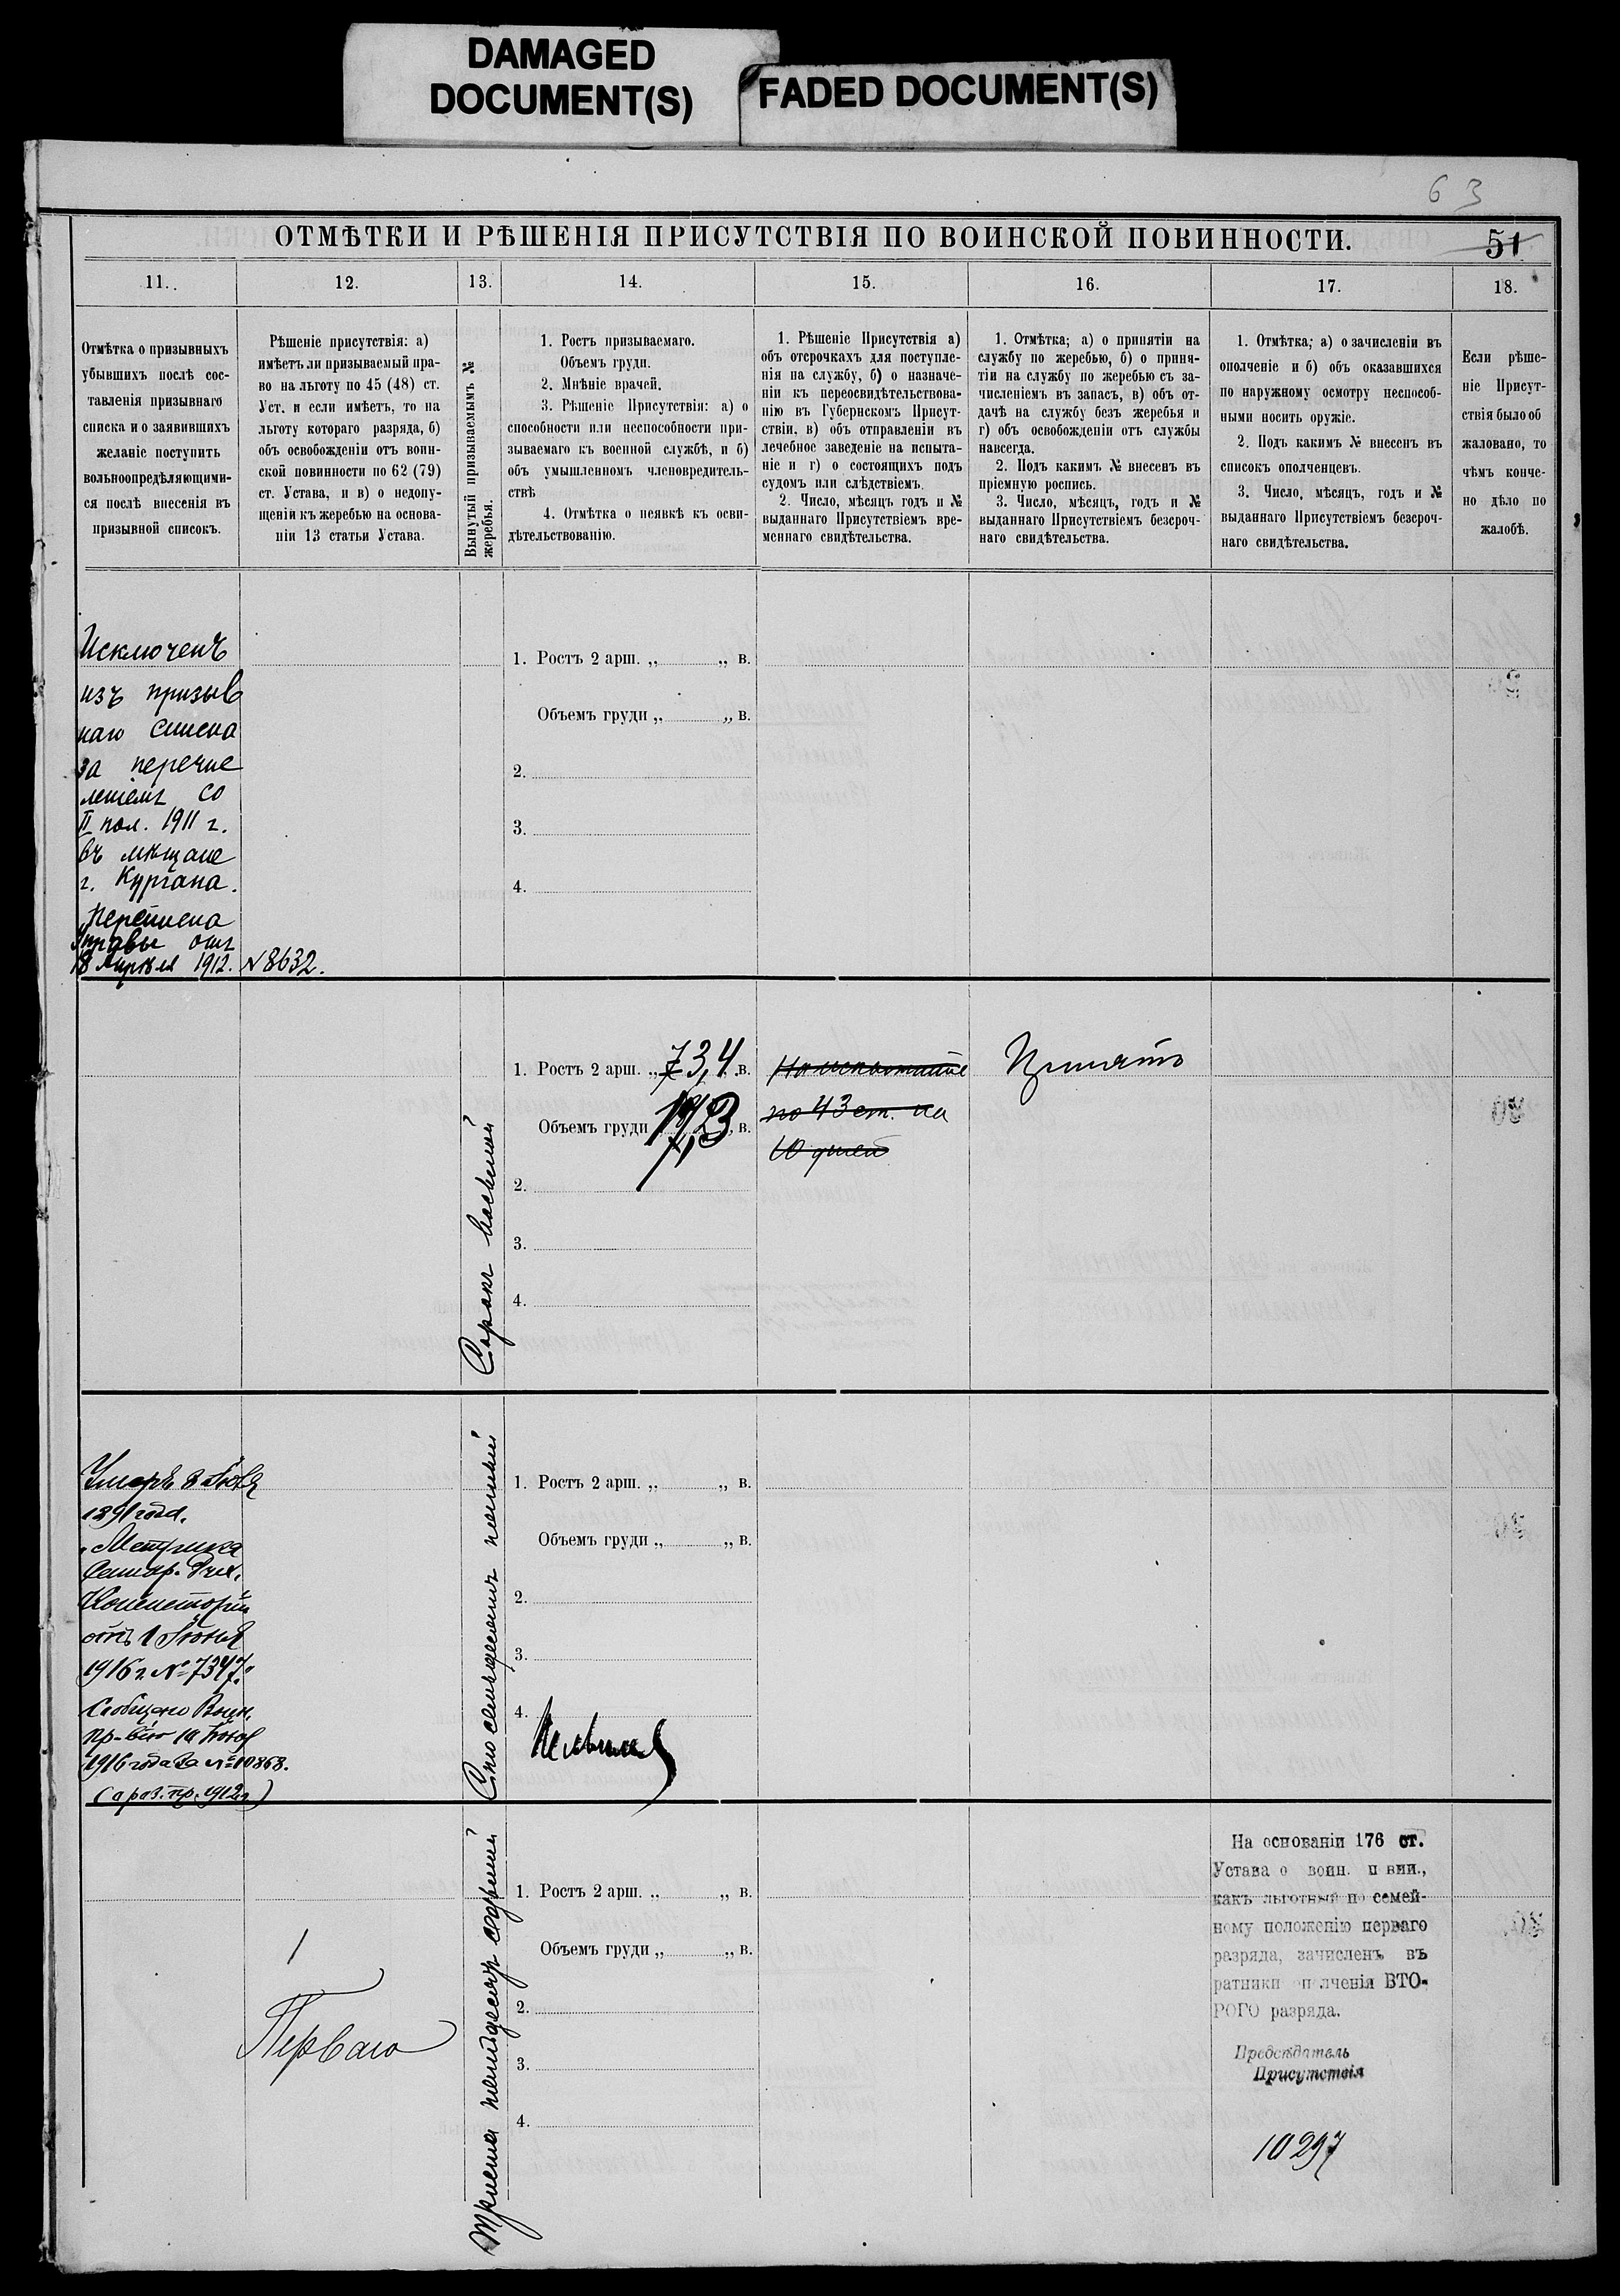 DAMAGED
DOCUMENT(S)
FADED DOCUMENT(S)
63
ОТМѢТКИ И РѢШЕНІЯ ПРИСУТСТВІЯ ПО ВОИНСКОЙ ПОВИННОСТИ.
51
11.
12.
13.
14.
15.
16.
17.
18.
Отмѣтка о призывныхъ
убывшихъ послѣ сос-
тавленія призывнаго
списка и о заявившихъ
желаніе поступить
вольноопредѣляющими-
ся послѣ внесенія въ
призывной списокъ.
Рѣшеніе присутствія: а)
имѣетъ ли призываемый пра-
во на льготу по 45 (48) ст.
Уст. и если имѣетъ, то на
льготу котораго разряда, б)
объ освобожденіи отъ воин-
ской повинности по 62 (79)
ст. Устава, и в) о недопу-
щеніи къ жеребью на основа-
ніи 13 статьи Устава.
Вынутый призываемымъ №
жеребья.
1. Ростъ призываемаго.
Объемъ груди.
2. Мнѣніе врачей.
3. Рѣшеніе Присутствія: а) о
способности или неспособности при-
зываемаго къ военной службѣ, и б)
объ умышленномъ членовредитель-
ствѣ
4. Отмѣтка о неявкѣ къ осви-
дѣтельствованію.
1. Рѣшеніе Присутствія а)
объ отсрочкахъ для поступле-
нія на службу, б) о назначе-
ніи къ переосвидѣтельствова-
нію въ Губернскомъ Присут-
ствіи, в) объ отправленіи въ
лечебное заведеніе на испыта-
ніе и г) о состоящихъ подъ
судомъ или слѣдствіемъ.
2. Число, мѣсяцъ годъ и №
выданнаго Присутствіемъ вре-
меннаго свидѣтельства.
1. Отмѣтка; а) о принятіи на
службу по жеребью, б) о приня-
тіи на службу по жеребью съ за-
численіемъ въ запасъ, в) объ от-
дачѣ на службу безъ жеребья и
г) объ освобожденіи отъ службы
навсегда.
2. Подъ какимъ № внесенъ въ
пріемную роспись.
3. Число, мѣсяцъ, годъ и №
выданнаго Присутствіемъ безсроч-
наго свидѣтельства.
1. Отмѣтка; а) о зачисленіи въ
ополченіе и б) объ оказавшихся
по наружному осмотру неспособ-
ными носить оружіе.
2. Подъ какимъ № внесенъ въ
списокъ ополченцевъ.
3. Число, мѣсяцъ, годъ и №
выданнаго Присутствіемъ безсроч-
наго свидѣтельства.
Если рѣше-
ніе Присут-
ствія было об
жаловано, то
чѣмъ конче-
но дѣло по
жалобѣ.
Исключенъ
изъ призыв
наго списка
за перечис
леніемъ со
II пол. 1911 г.
въ мѣщане
г. Кургана.
Переписка
Управы отъ
18 Апрѣля 1912. N 8632.
1. Ростъ 2 арш. „ „ в.
Объемъ груди „ „ в.
2.
3.
4.
Сорокъ восьмой
1. Ростъ 2 арш. „ 73,4 в.
Объемъ груди в.
2.
3.
4.
На испытаніе
по 43 ст. на
10 дней
Принятъ
Умеръ 8 Іюля
1891 года.
„Метрика
Самар. Дух.
Консисторіи
отъ 1 Іюня
1916 г. № 7347."
Сообщено Воин.
пр-вію 10 Іюня
1916 года за № 10868.
(о роз. пр. 1912 г.)
Сто семьдесятъ пятый
1. Ростъ 2 арш. „ „ в.
Объемъ груди „ „ в.
2.
3.
4.
Не явился
1
Перваго
Триста пятьдесят седьмой
1. Ростъ 2 арш. „ „ в.
Объемъ груди „ „ в.
2.
3.
4.
На основаніи 176 ст.
Устава о воин. п вин.,
какъ льготный по семей-
ному положенію перваго
разряда, зачисленъ въ
ратники оп лченія ВТО-
РОГО разряда.
Предсѣдатель
Присутствія
10297